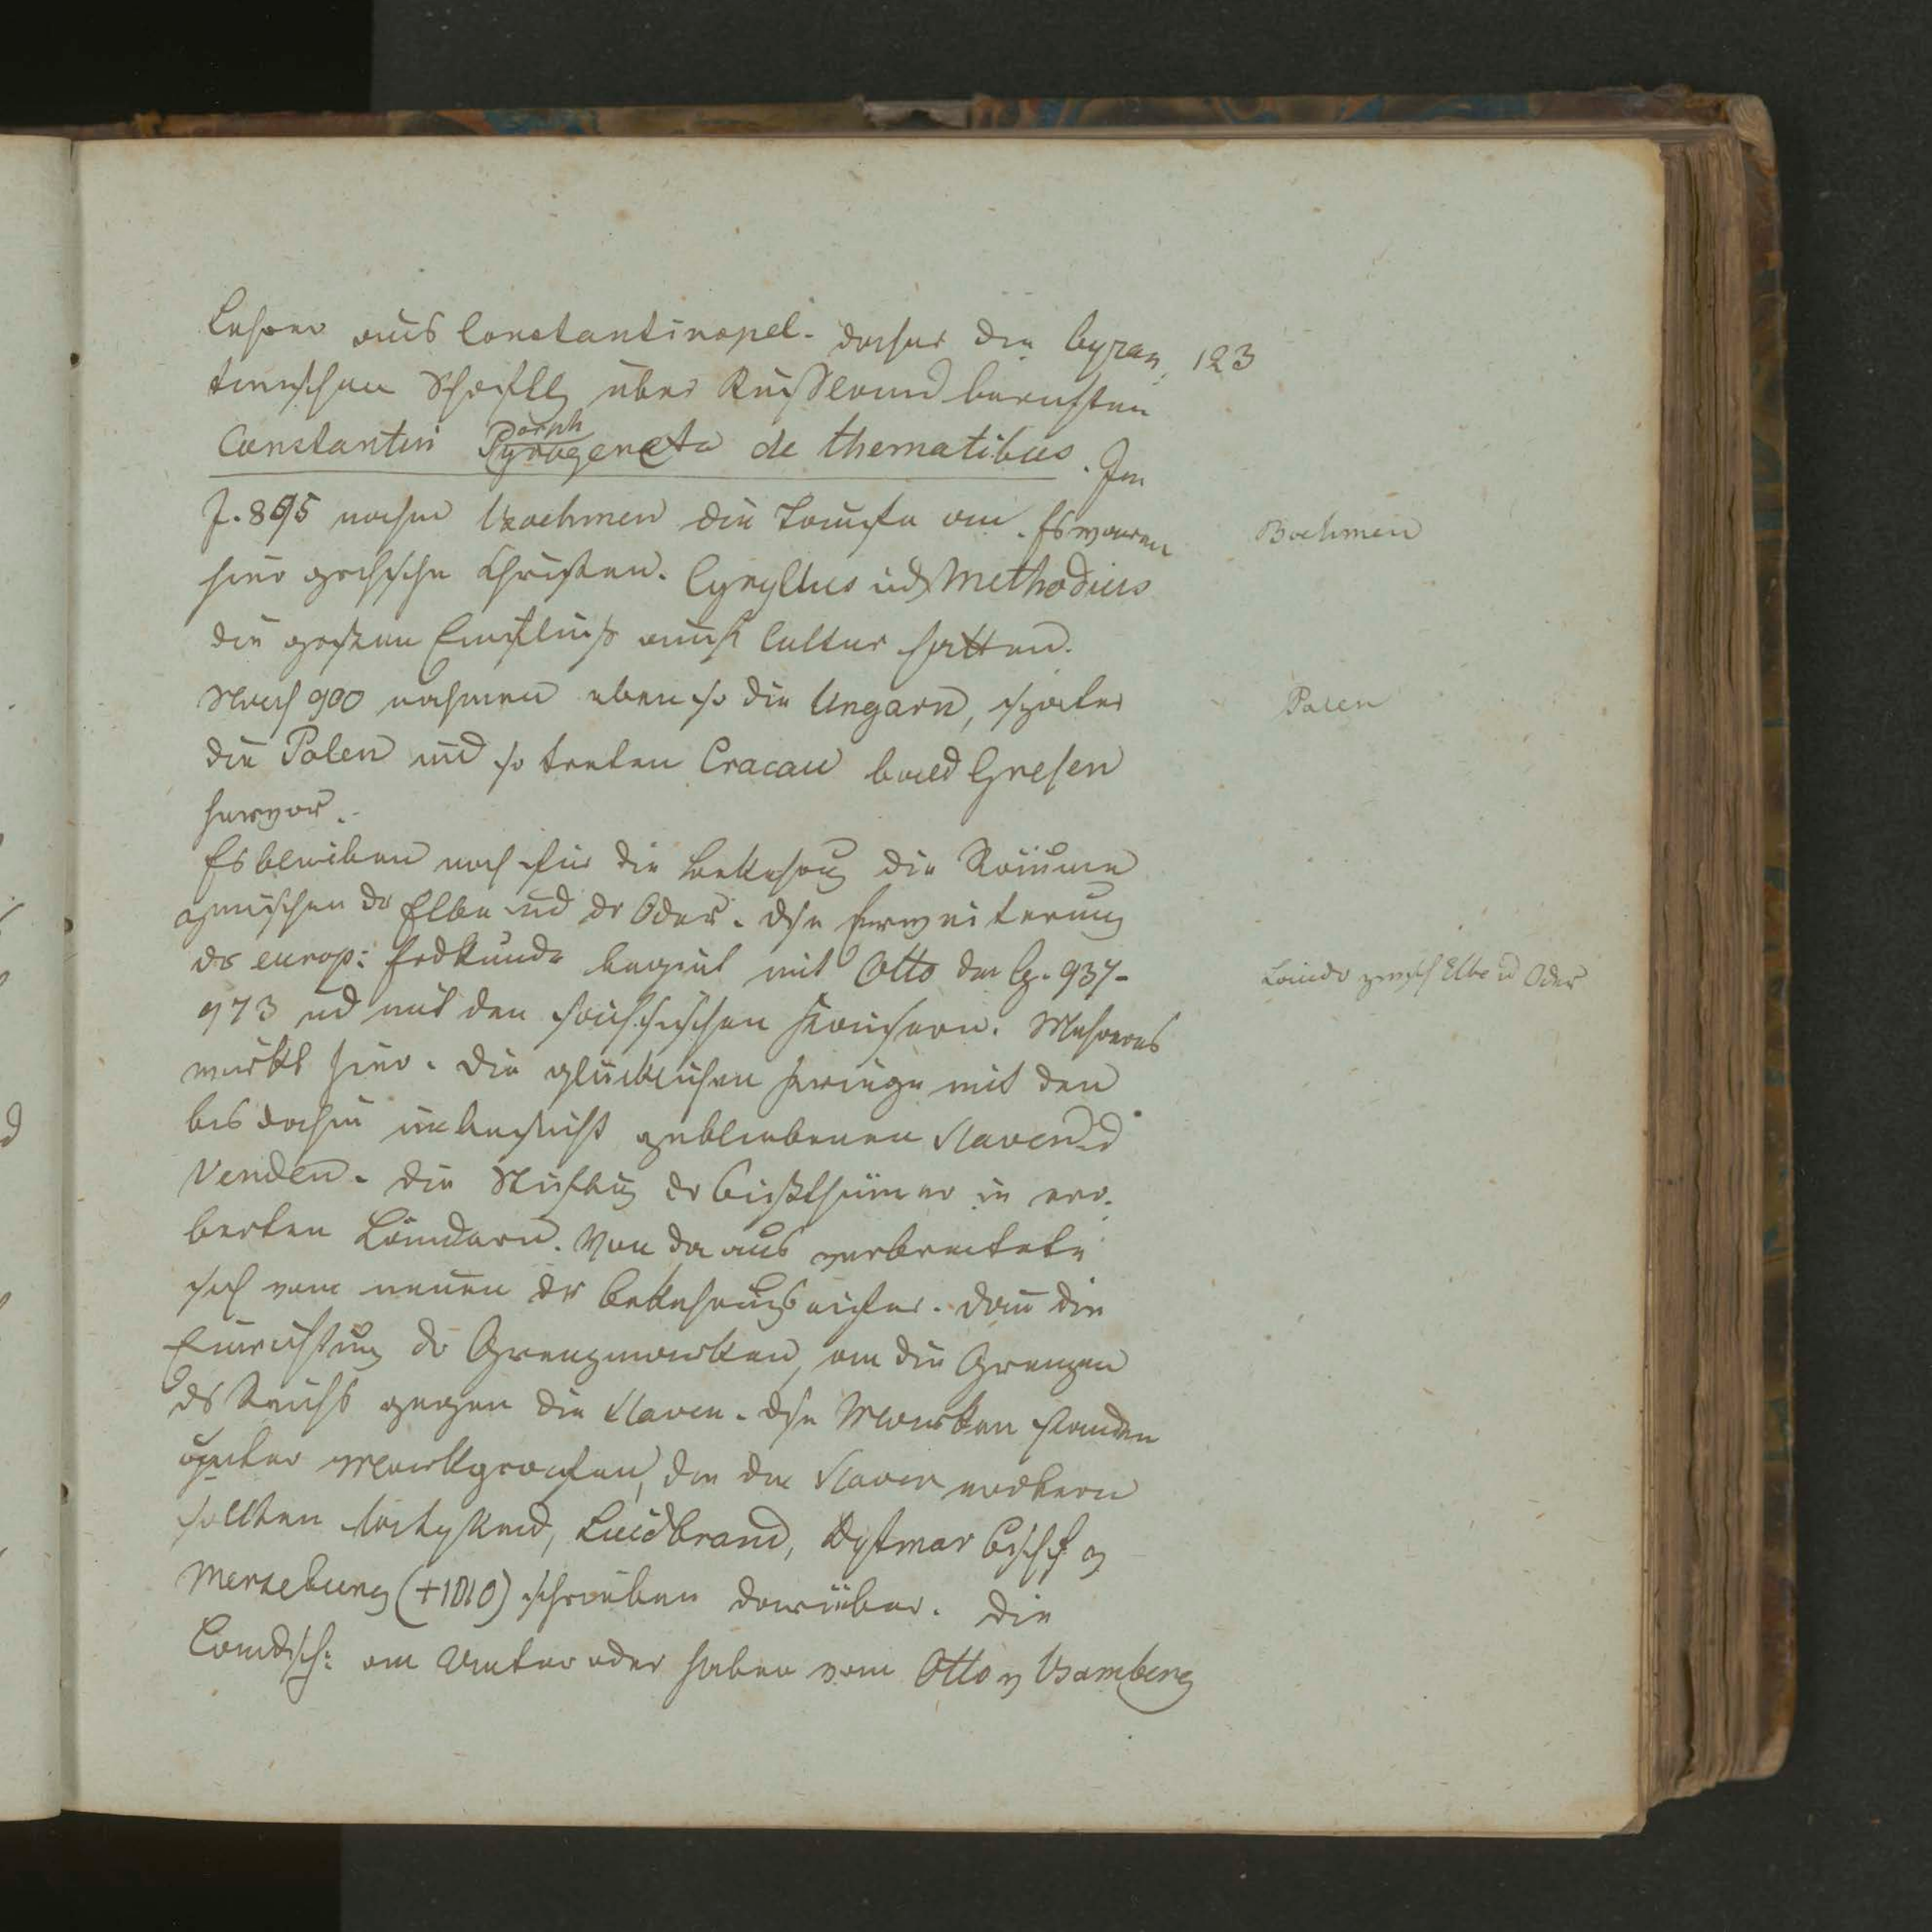 Lehrer aus Constantinopel. daher die byzan 123
tinischen Schriftst über Rußland berichten
Constantin Pyrogeneta de thematibus. Im
porph
J. 895 nahm Boehmen die Taufe an. Es waren
Boehmen
hier grchsche Christen. Cyryllus ud Methodius
die großen Einfluß auch Cultur hatten.
Nach 900 nahmen eben so die Ungarn, später
Polen
die Polen und so treten Cracau bald Gnesen
hervor.
Es bleiben noch für die Bekehrug die Räume
zwischen dr Elbe und dr Oder. dse Erweiterung
dr europ: Erdkunde beginnt mit Otto dem G. 937-
Länder zwisch Elbe u Oder
973 ud mit den sächsischen Kaisern. Mehreres
wirkt hier. die glücklichen Kriege mit den
bis dahin unbesucht gebliebenen Slaven ud
Venden. die Stiftug dr Bisthümer in ero-
berten Ländern. Von da aus verbreitete
sich von neuen dr Bekehrungseifer. dann die
Einrichtung dr Grenzmarken, an die Grenzen
ds Reichs gegen die Slaven. dse Marken standen
unter Markgrafen, die die Slaven
sollten Luidbrand, Dytmar Bischof v
Merseburg (+1010) schreiben darüber. die
Landsch: an Unter oder haben vom Otto v Bamberg